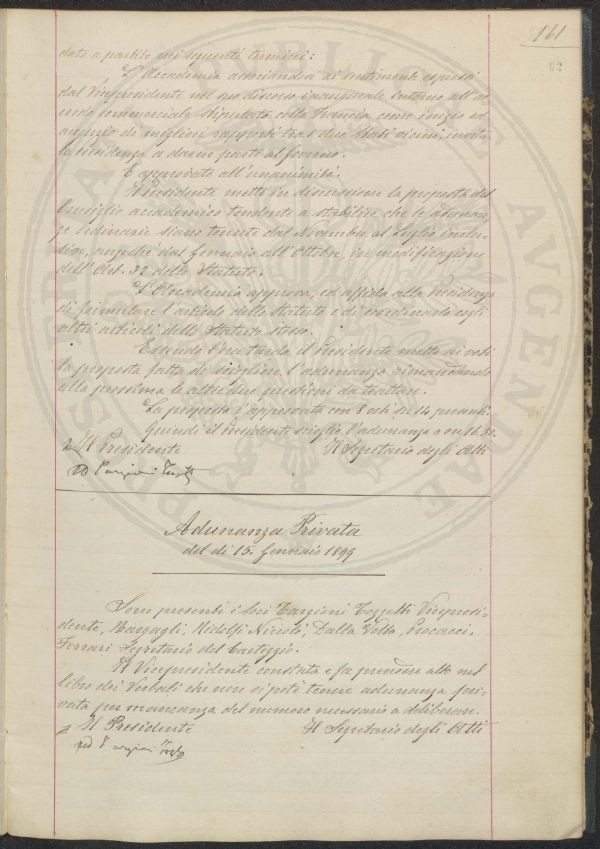 161
82
dato a partito nei seguenti termini:
L'Accademia associandosi ai sentimenti espressi
dal Vicepresidente nel suo discorso inaugurale intorno all'ac
cordo commerciale stipulato colla Francia come inizio ed
augurio di migliori rapporti tra i due Stati vicini, invita
la Presidenza a darne parte al Governo.
È approvato all'unanimità.
Il Presidente mette in discussione la proposta del
Consiglio accademico tendente a stabilire che le adunan-
ze ordinarie siano tenute dal Novembre al Luglio inclu-
sive, anziché dal Gennaio all'Ottobre, in modificazione
dell'Art. 32 dello Statuto.
L'Accademia approva, ed affida alla Presidenza
di formulare l'articolo dello Statuto e di coordinarlo cogli
altri articoli dello Statuto stesso.
Essendo l'ora tarda il Presidente mette ai voti
la proposta fatta di sciogliere l'adunanza rimandando
alla prossima le altre due questioni da trattare.
La proposta è approvata con 8 voti su 14 presenti.
Quindi il Presidente scioglie l'adunanza a ore 16.30.
Il Presidente Il Segretario degli Atti
Targioni Tozzetti
Adunanza Privata
del dì 15 Gennaio 1899
Sono presenti i Soci Targioni Tozzetti Vicepresi-
dente, Bargagli, Ridolfi Niccolò, Dalla Volta, Procacci,
Ferrari Segretario del Carteggio.
Il Vicepresidente constata e fa prendere atto nel
libro dei Verbali che non si potè tenere adunanza pri-
vata per mancanza del numero necessario a deliberare.
Il Presidente Il Segretario degli Atti
Targioni Tozzetti
PVBLICAE
AVGENIAE
PROSPERITATI